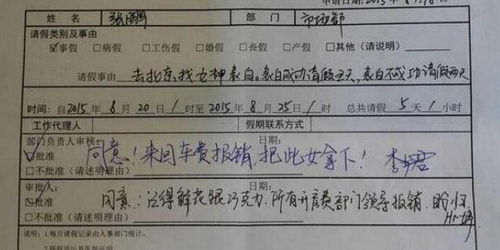 申请日 2015年8月18日
姓名 张 部门 市场部
请假类别及事由
☑事假 □病假 □工伤假 □婚假 □丧假 □产假 □其他（请说明）
请假事由 去北京，找女神表白，表白成功请假五天，表白不成功请假两天
时间：自2015年8月20日1时至2015年8月25日1时 总共请假5天1小时
工作代理人 假期联系方式
部门负责人审核： 日期：
☑批准 同意！来回车费报销，把此女拿下！ 李
□不批准（请述明理由）
审批人： 日期：
☑批准 同意：记得鲜花跟巧克力，所有开店费部门领导报销，盼归
□不批准（请述明理由） Hr
说明：1.每月请假记录由人事部门统计。